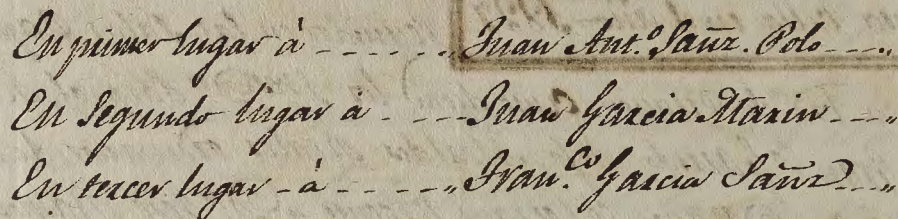 En primer lugar à - - - - - „ Juan Ant.º Sañz. Polo - - - „
En Segundo lugar a - - - - Juan Garcia Marin - - - „
En tercer lugar - à - - - - „ Fran.co Garcia Sañz - - „